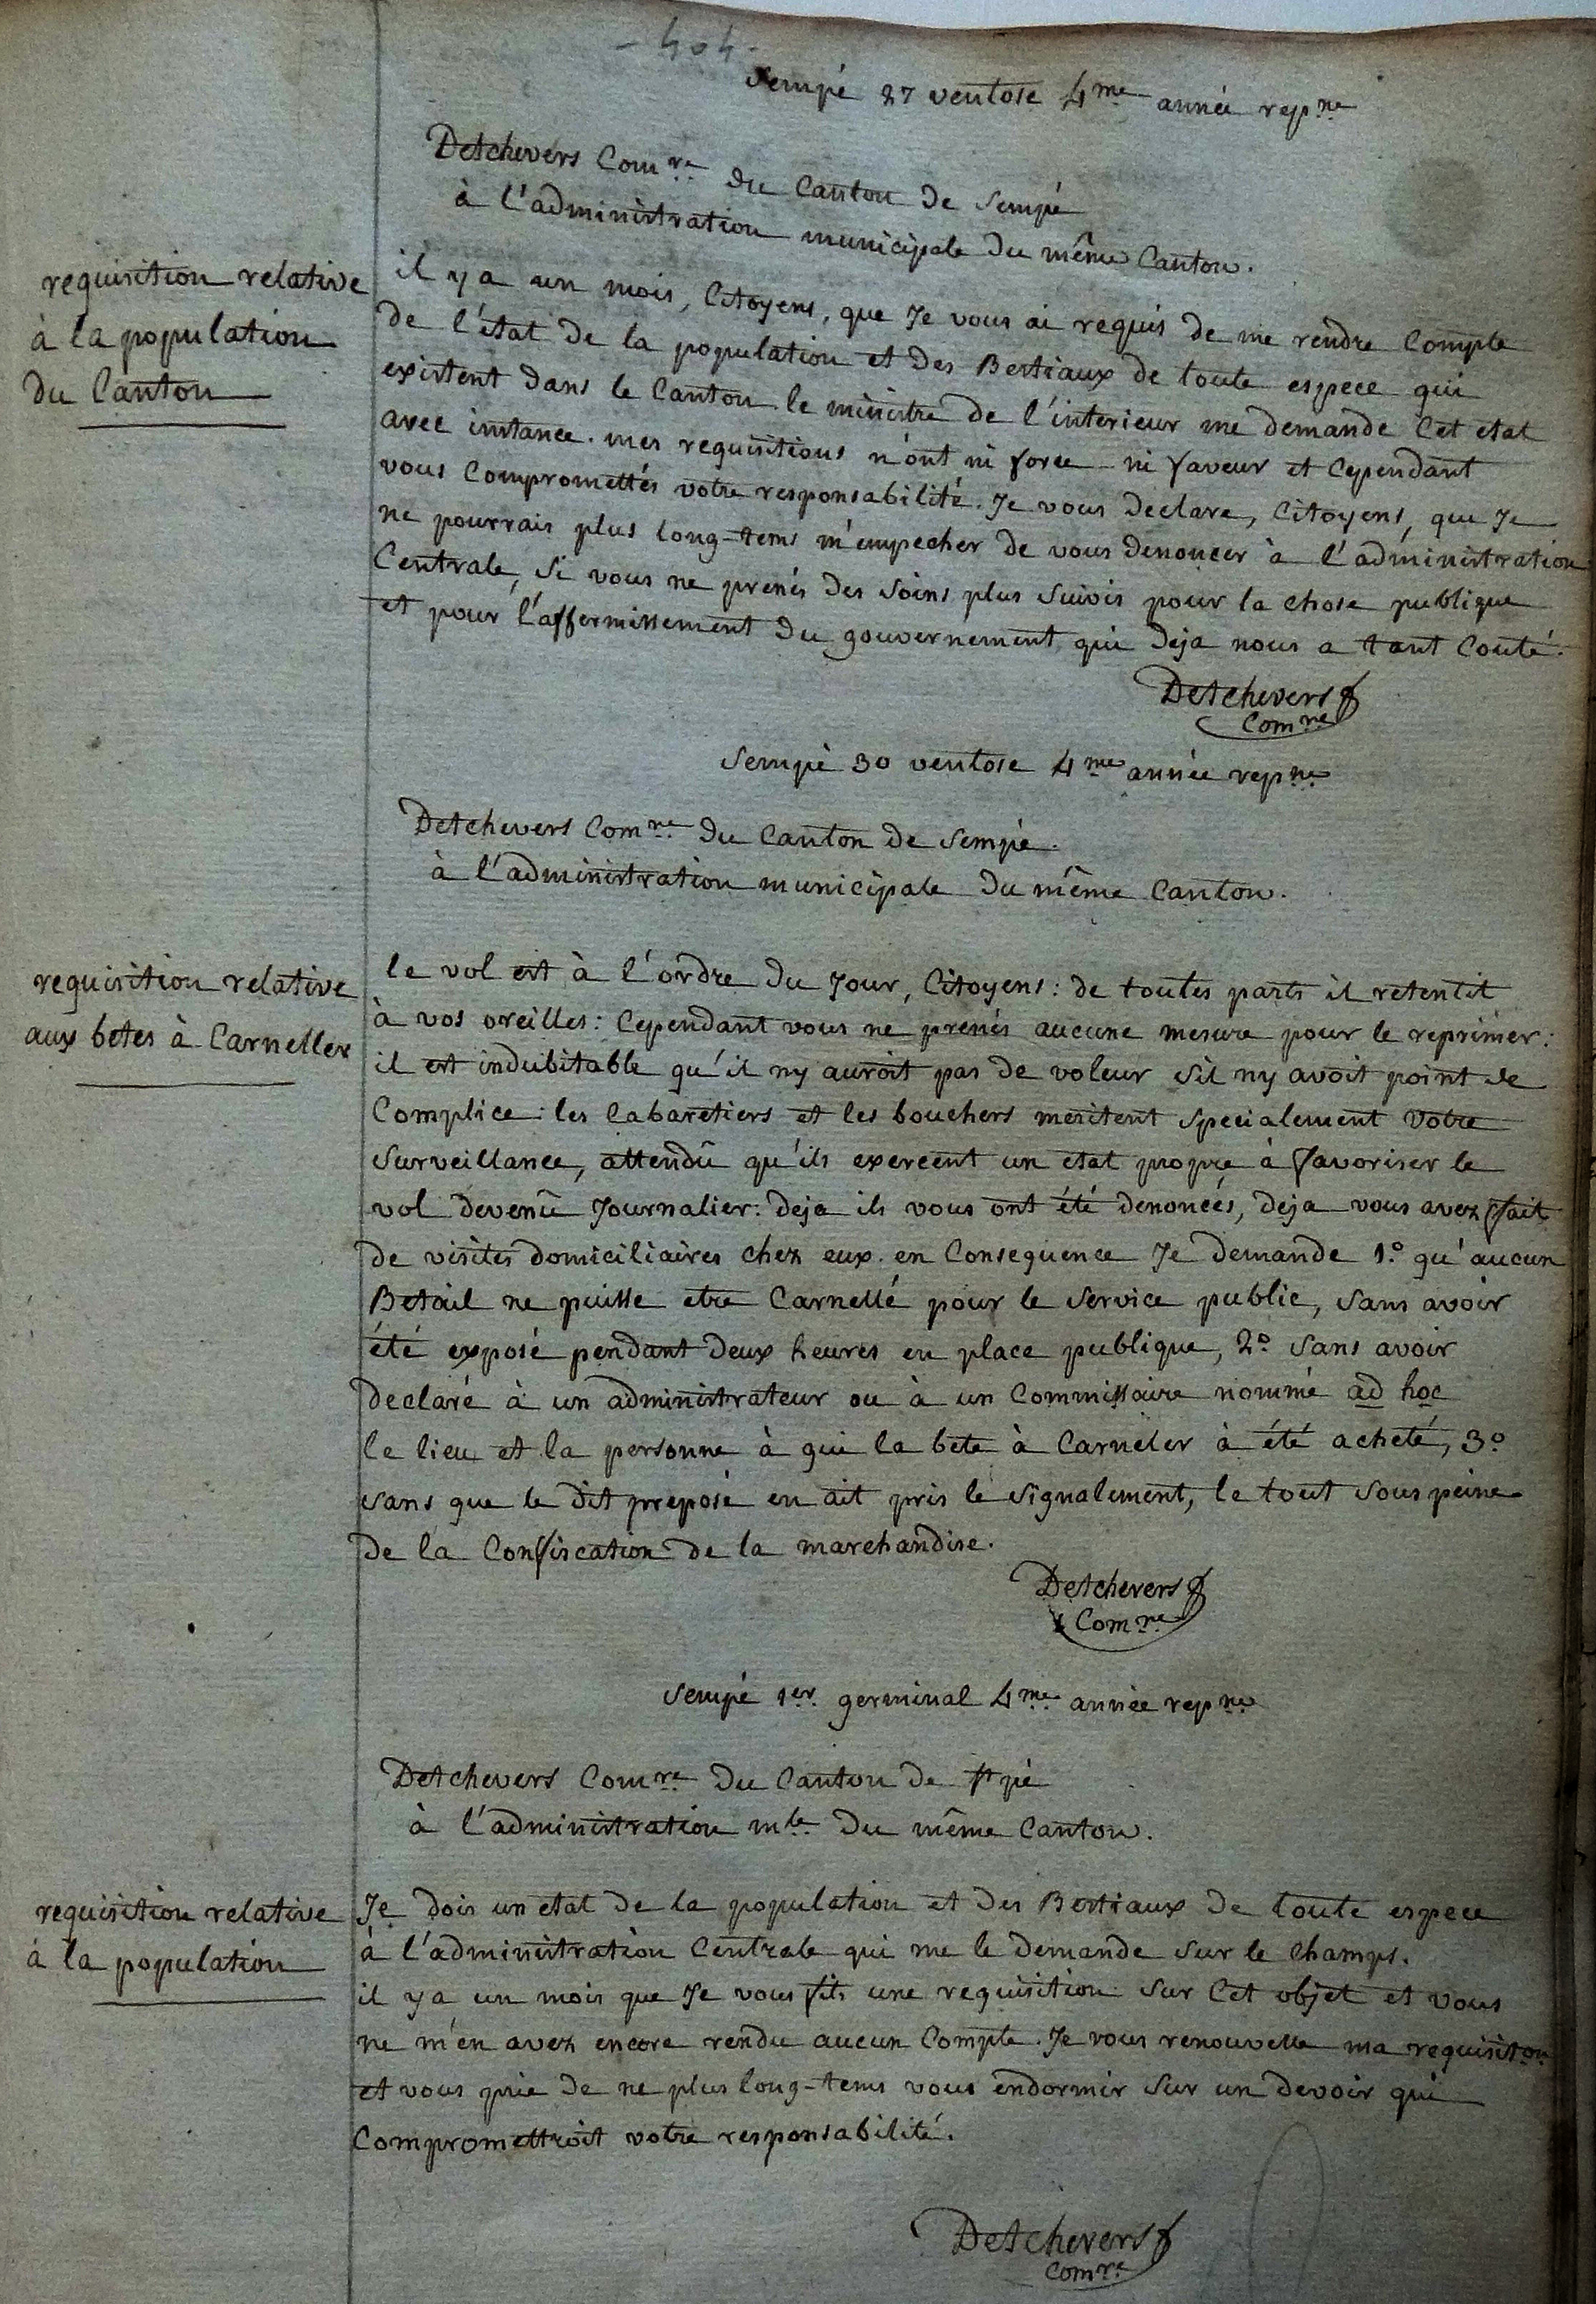 - 404 -
Sempé 27 ventose 4me année repne
Detchevers Comre du Canton de Sempé
à l'administration municipale du même Canton.
requisition relative
à la population
du Canton
il y a un mois, Citoyens, que Je vous ai requis de me rendre Compte
de l'état de la population et des Bestiaux de toute espece qui
existent dans le Canton. le ministre de l'interieur me demande Cet etat
avec instance. mes requisitions n'ont ni force ni faveur et Cependant
vous Compromettés votre responsabilité. Je vous declare, Citoyens, que Je
ne pourrais plus long-tems m'empecher de vous denoncer à l'administration
Centrale, si vous ne prenés des soins plus suivis pour la chose publique
et pour l'affermissement du gouvernement qui deja nous a tant Couté.
Detchevers
Comre
Sempé 30 ventose 4me année repne
Detchevers Comre du Canton de Sempé.
à l'administration municipale du même Canton.
requisition relative
aux betes à Carneller
le vol est à l'ordre du Jour, Citoyens: de toutes parts il retentit
à vos oreilles: Cependant vous ne prenés aucune mesure pour le reprimer:
il est indubitable qu'il ny auroit pas de voleur sil ny avoit point de
Complice: les Cabaretiers et les bouchers meritent specialement votre
surveillance, attendû qu'ils exercent un etat propre à favoriser le
vol devenû Journalier: deja ils vous ont été denoncés, deja vous avez fait
de visites domiciliaires chez eux. en Consequence Je demande 1.° qu'aucun
Betail ne puisse etre Carnellé pour le service public, sans avoir
été exposé pendant deux heures en place publique, 2.° sans avoir
declaré à un administrateur ou à un Commissaire nommé ad hoc
le lieu et la personne à qui la bete à Carneler à été acheté, 3.°
sans que le dit preposé en ait pris le signalement, le tout sous peine
de la Confiscation de la marchandise.
Detchevers
Comre
Sempé 1er germinal 4me année repne
Detchevers Comre du Canton de St pé
à l'administration mle du même Canton.
requisition relative
à la population
Je dois un etat de la population et des Bestiaux de toute espece
à l'administration Centrale qui me le demande sur le champs.
il y a un mois que Je vous fits une requisition sur Cet objet et vous
ne m'en avez encore rendu aucun Compte. Je vous renouvelle ma requisition
et vous prie de ne plus long-tems vous endormir sur un devoir qui
Compromettroit votre responsabilité.
Detchevers
Comre